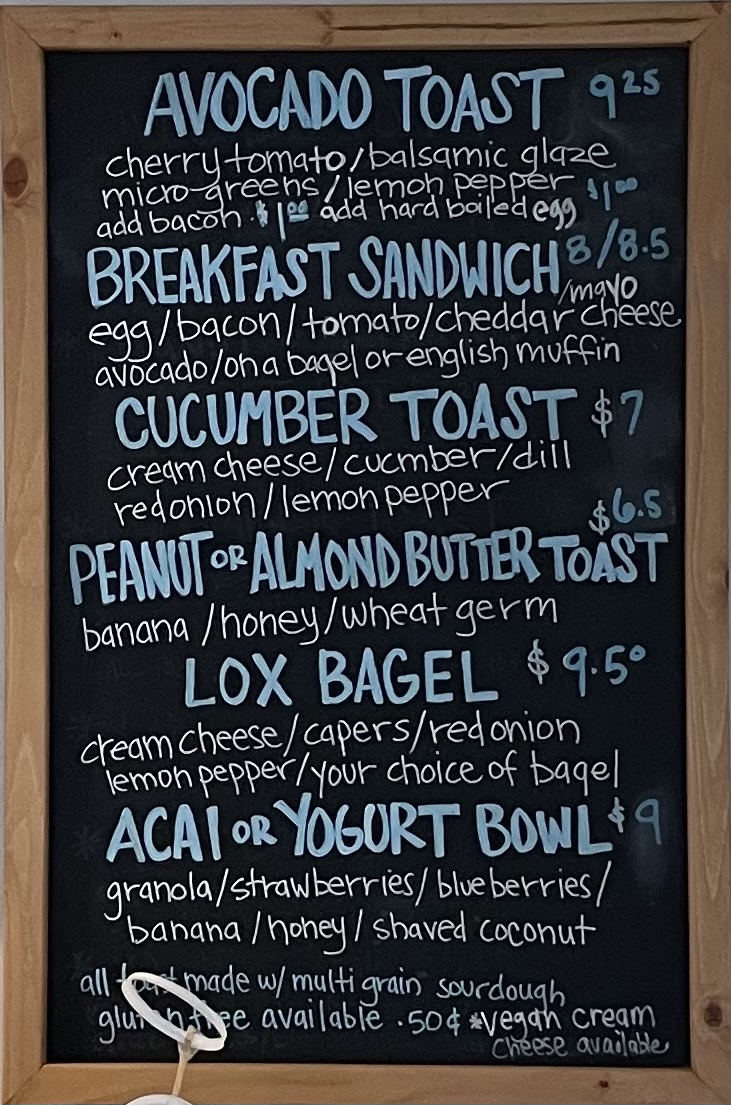 AVOCADO TOAST 9 25
cherry tomato/balsamic glaze
micro-greens/lemon pepper
add bacon $1.00 add hard boiled egg $1.00
BREAKFAST SANDWICH 8/8.5
/mayo
egg/bacon/tomato/cheddar cheese
avocado/on a bagel or english muffin
CUCUMBER TOAST $7
cream cheese/cucmber/dill
red onion/lemon pepper
$6.5
PEANUT OR ALMOND BUTTER TOAST
banana/honey/wheat germ
LOX BAGEL $9.50
cream cheese/capers/red onion
lemon pepper/your choice of bagel
ACAI OR YOGURT BOWL $9
granola/strawberries/blueberries/
banana/honey/shaved coconut
all toast made w/ multi grain sourdough
gluten free available .50¢ *vegan cream
cheese available